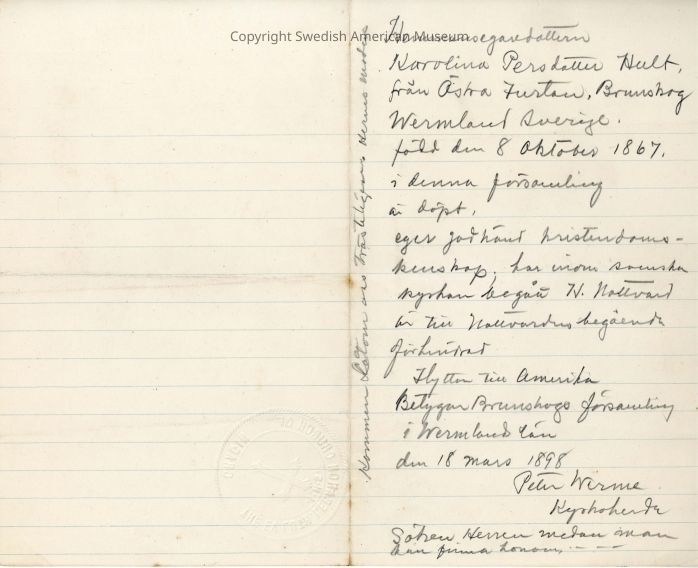 Copyright Swedish American Museum
Hemmansegaredottern
Karolina Persdotter Hult,
från Östra Furtan, Brunskog
Wermland Sverige.
född den 8 Oktober 1867.
i denna församling
är döpt,
eger godkänd kristendoms-
kenskap, har inom svenska
kyrkan begått H. Nattvard
är till Nattvardens begående
oförhindrad
Flyttar till Amerika
Betygar Brunskogs församling
i Wermlands Län
den 18 mars 1898
Peter Werme
Kyrkoherde
Söken Herren medan man
kan finna honom - - -
Kommen Låtom oss